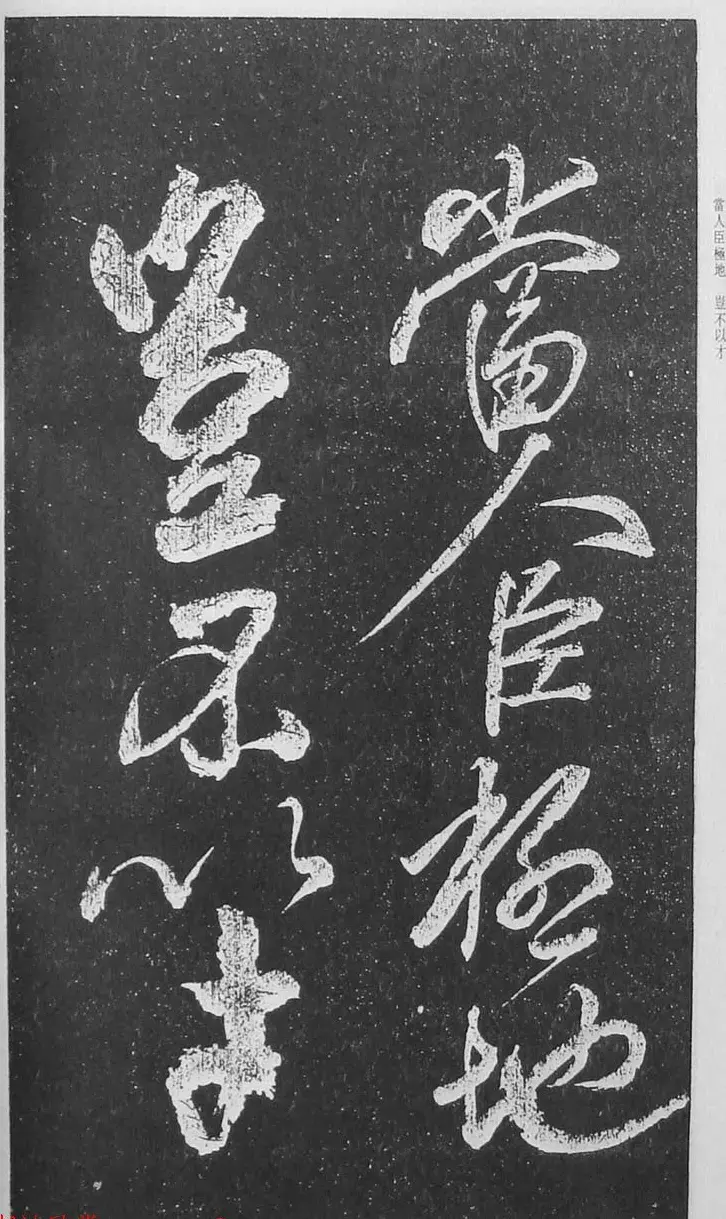 當人臣極地
豈不以才
當人臣極地 豈不以才